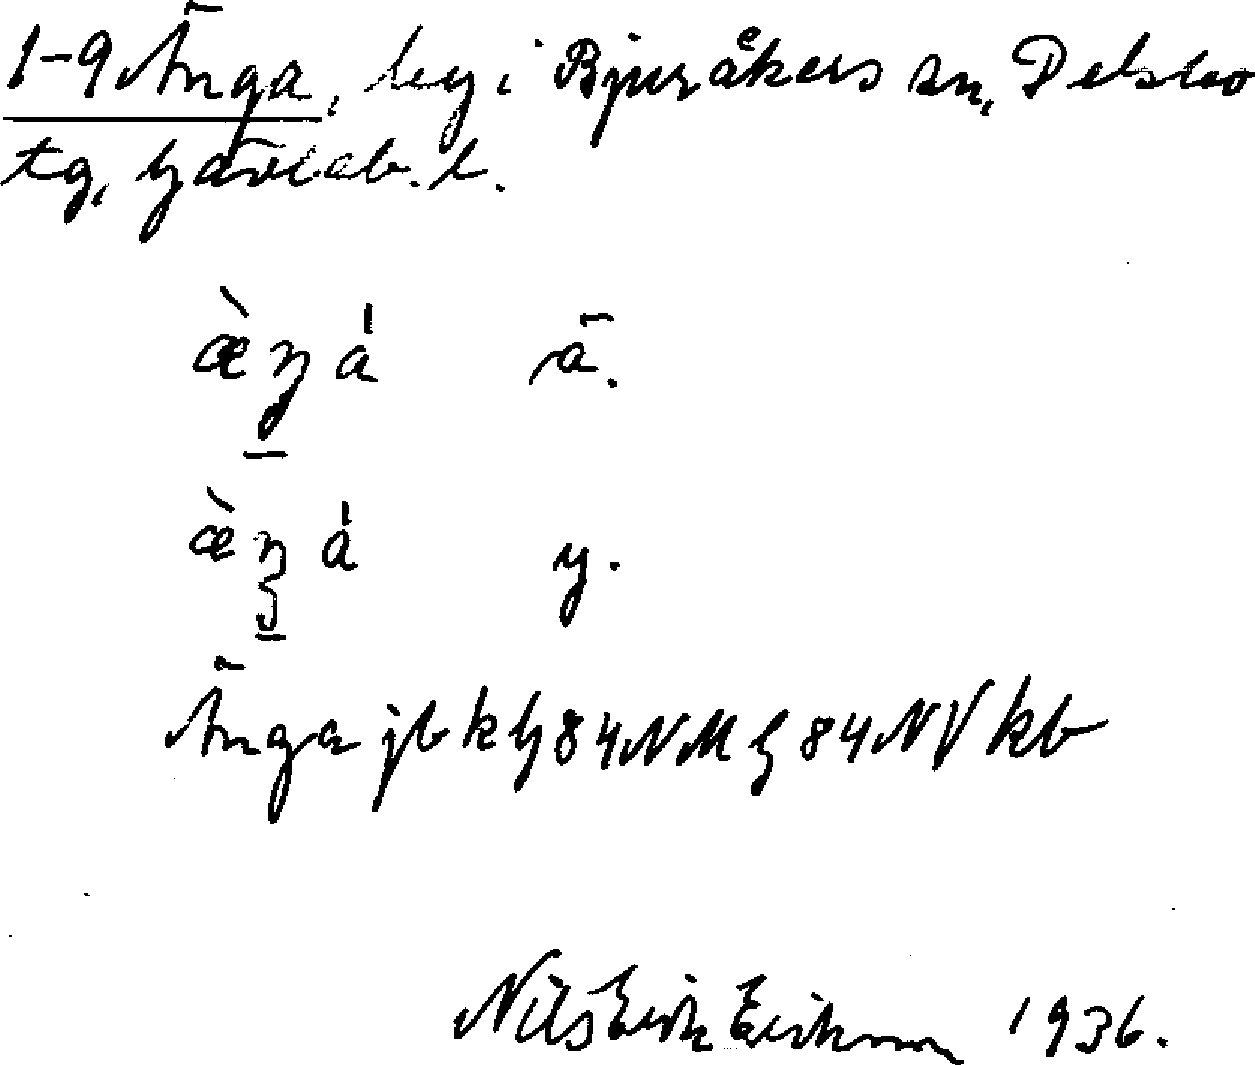 1-9 Änga, by i Bjuråkers sn, Delsbo
tg, Gävleb. l.
æ̀ŋá ä.
æ̀ŋá y.
Änga jb k G 84 NM G 84 NV kb
Nils Erik Erikson 1936.